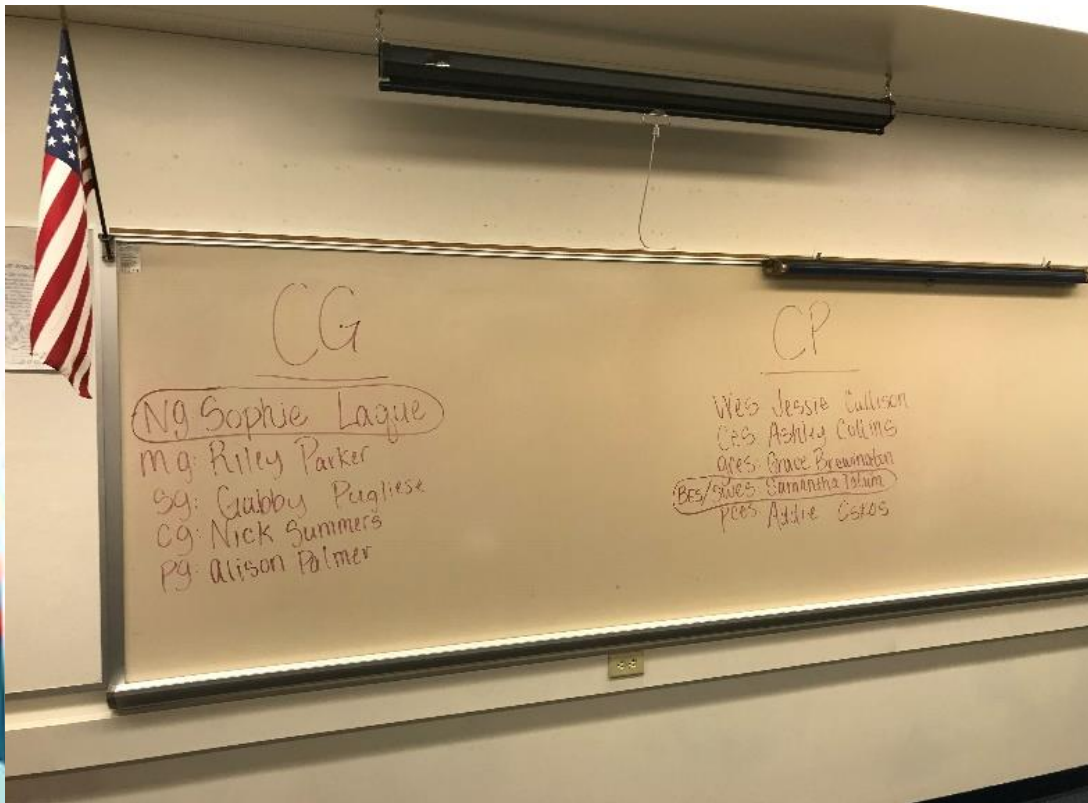 CG
Ng Sophie Laque
mg: Riley Parker
Sg: Gabby Pugliese
Cg: Nick Summers
Pg: alison Palmer
CP
Wes Jessie Cullison
Ces Ashley Collins
Grace Brewington
BES/ Samantha Tatum
Pces Addie